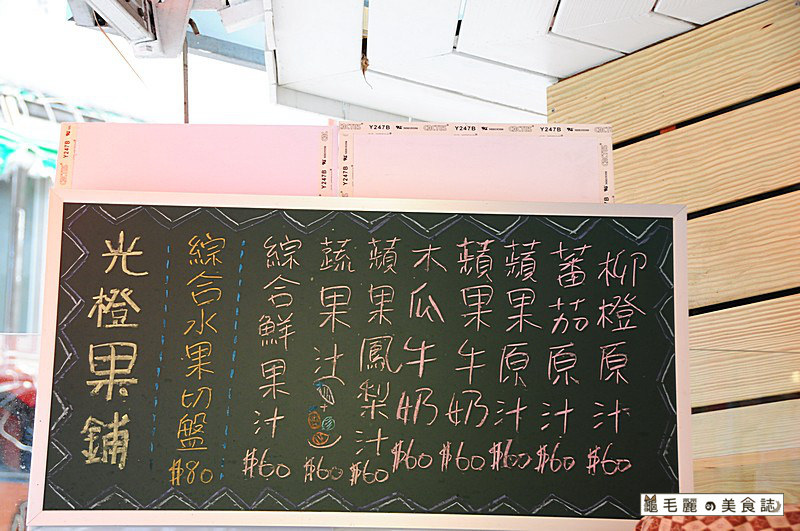 柳橙原汁 $60
蕃茄原汁 $60
蘋果原汁 $60
蘋果牛奶 $60
木瓜牛奶 $60
蘋果鳳梨汁 $60
蔬果汁 $60
綜合鮮果汁 $60
綜合水果切盤 $80
光橙果鋪
Y247B
Y247B
Y247B
Y247B
Y247B
Y247B
Y247B
龜毛麗の美食誌